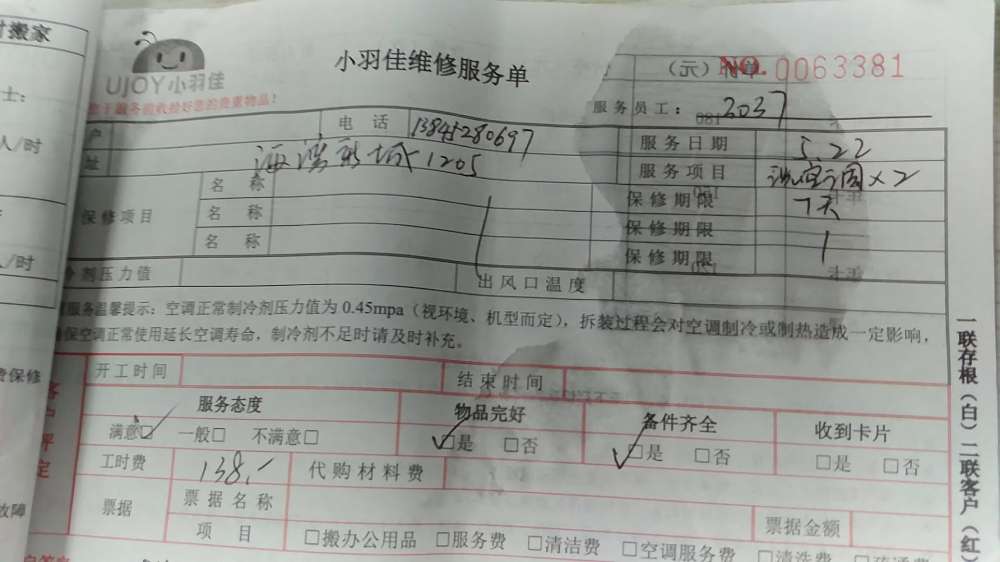 小羽佳维修服务单
UJOY小羽佳
NO. 0063381
服务员工: 2037
电话 13845280697
服务日期 5.22
址 海湾新城 1205
服务项目 洗空调×2
保修项目 名称
保修期限 7天
名称
保修期限
名称
保修期限
冷剂压力值
出风口温度
服务温馨提示:空调正常制冷剂压力值为 0.45mpa(视环境、机型而定),拆装过程会对空调制冷或制热造成一定影响,
保空调正常使用延长空调寿命,制冷剂不足时请及时补充。
开工时间
结束时间
服务态度
物品完好
备件齐全
收到卡片
满意☑ 一般□ 不满意□
☑是 □否
☑是 □否
□是 □否
工时费 138.
代购材料费
票据
票据名称
票据金额
项目 □搬办公用品 □服务费 □清洁费 □空调服务费 □清洗费 □疏通费
一联存根(白)二联客户(红)
搬家
士:
人/时
/时
费保修
故障